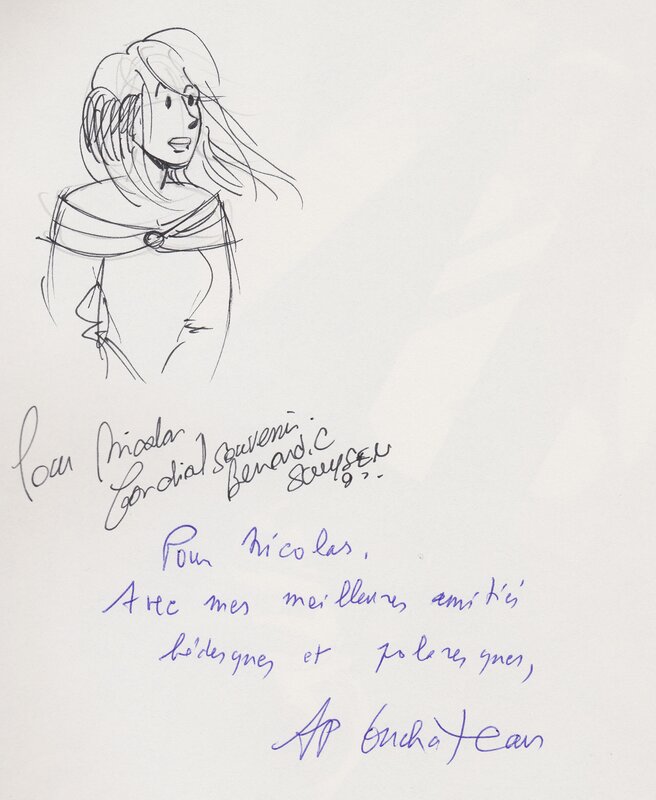 Pour Nicolas
Cordial souvenir.
Pour Nicolas.
Avec mes meilleures amitiés
bédesques et polaresques,
AP Duchâteau